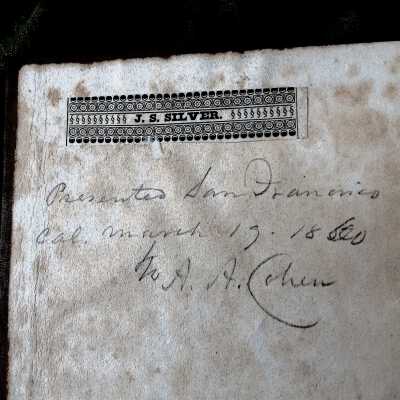 §§§§§§§§§ J. S. SILVER. §§§§§§§§§
Presented San Francisco
Cal. March 19. 1860
To A. A. Cohen